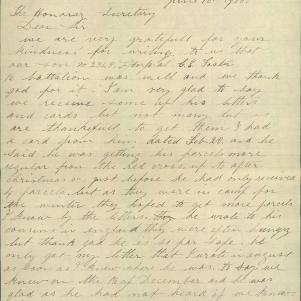 June 10. 1918.
The Honoray Secretary
Dear Sir
we are very gratefull for your
kindness for writing to us that
our son No 2349. L/Corpal C.E.
16 battalion was well and we thank
god for it. I am very glad to say
we receive some of his letters
and cards but not many but we
are thankfull to get them I had
a card from him dated Feb 20. and he
said he was getting his parcels more
regular from the Red cross up to after
christmas or just before he had only received
parcels but as they were in camp for
the winter they hoped to get more parcels
I know by the letters he wrote to his
cousins in england they were often hungry
but thank god he is so far safe. he
only got my letter that I wrote in august
as soon as I knew where he was. to say we
knew on the of December and he was
glad as he had not heard if we knew